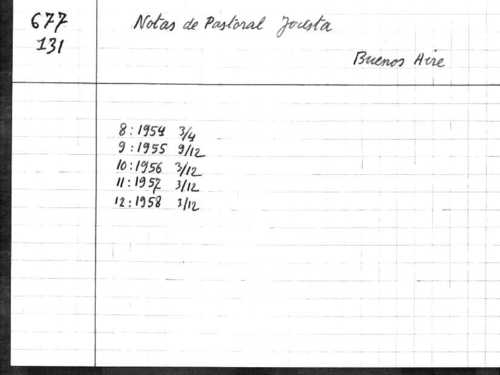 677
131
Notas de Pastoral Jocista
Buenos Aire
8:1954 3/4
9:1955 9/12
10:1956 3/12
11:1957 3/12
12:1958 3/12